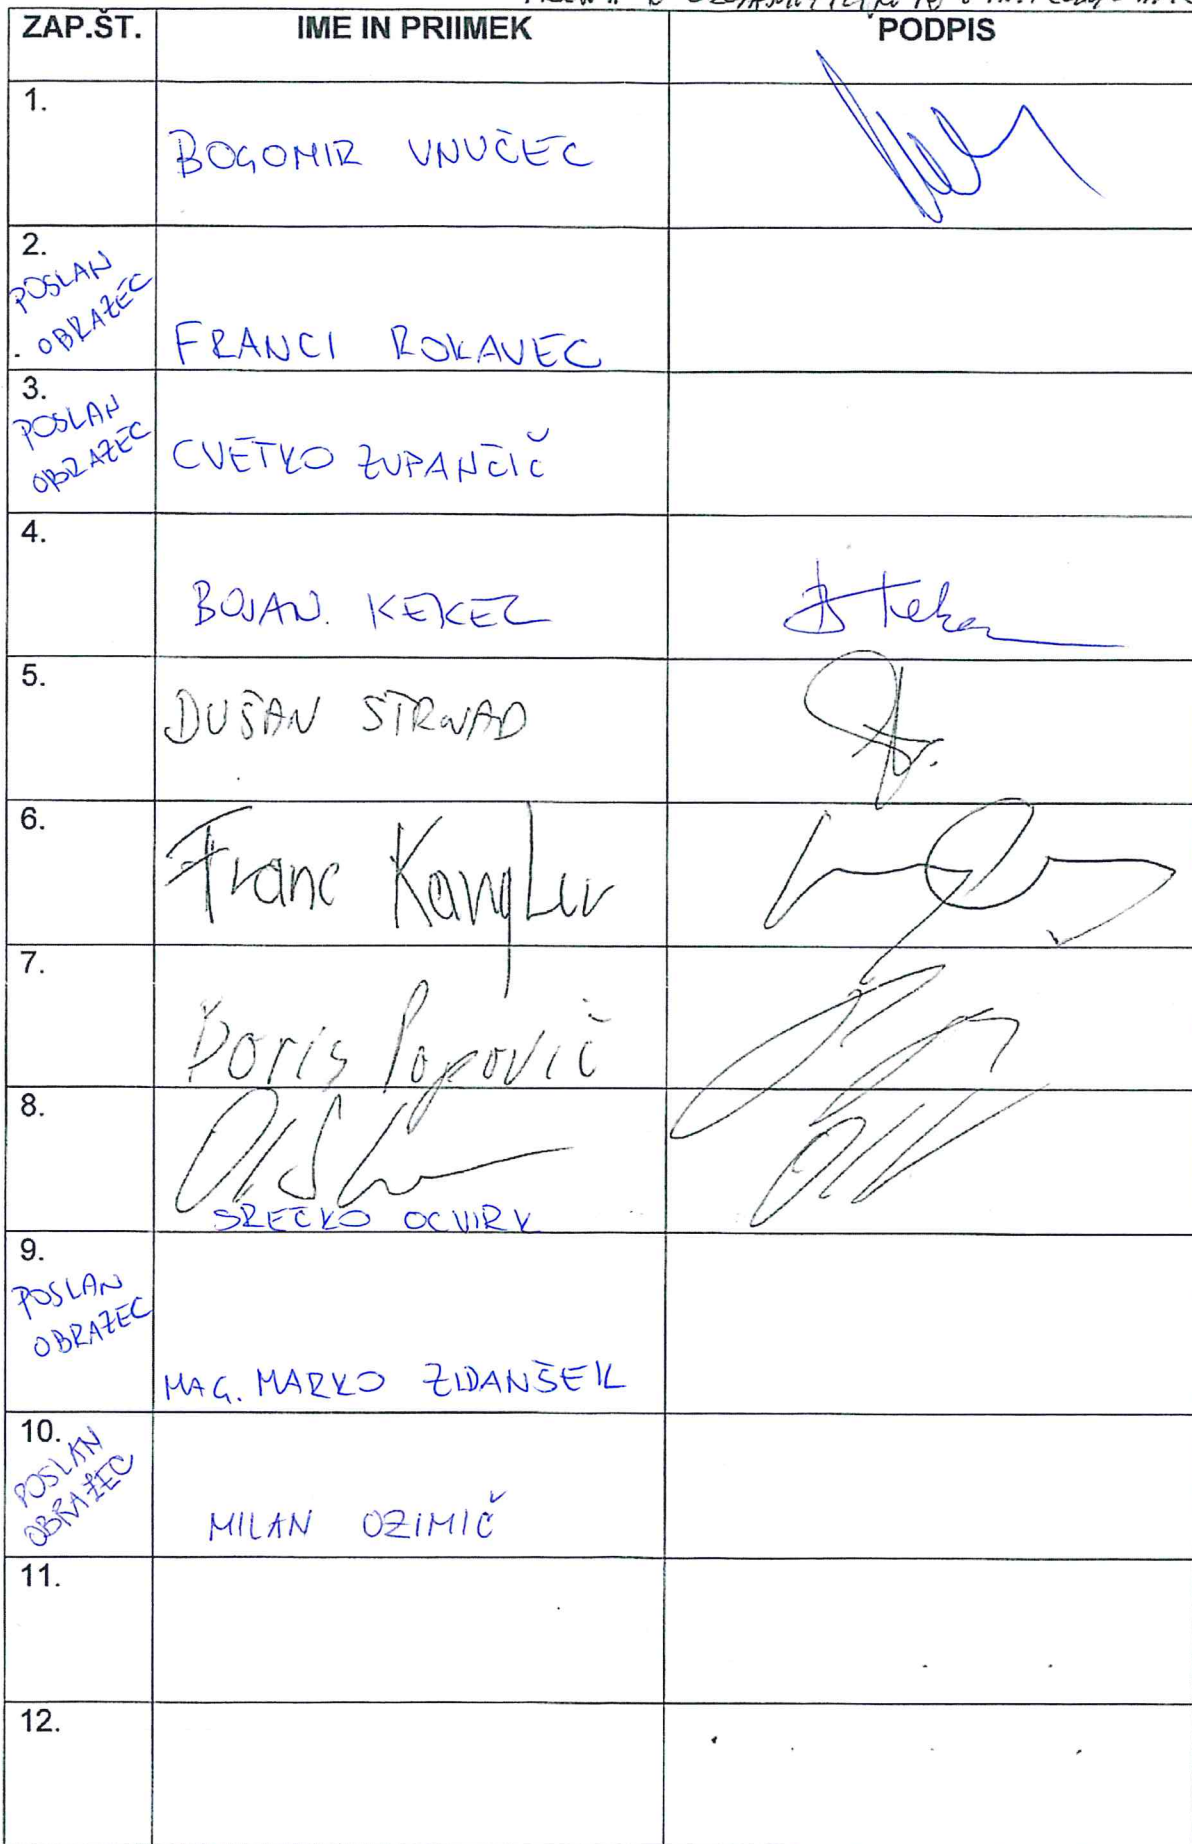 ZAP.ŠT. IME IN PRIIMEK PODPIS
1.
BOGOMIR VNUČEC
2.
POSLAN
OBRAZEC
FRANCI ROKAVEC
3.
POSLAN
OBRAZEC
CVETKO ZUPANČIČ
4.
BOJAN KEKEC
5.
DUŠAN STRNAD
6.
Franc Kangler
7.
Boris Popovič
8.
SREČKO OCVIRK
9.
POSLAN
OBRAZEC
MAG. MARKO ZIDANŠEK
10.
POSLAN
OBRAZEC
MILAN OZIMIČ
11.
12.